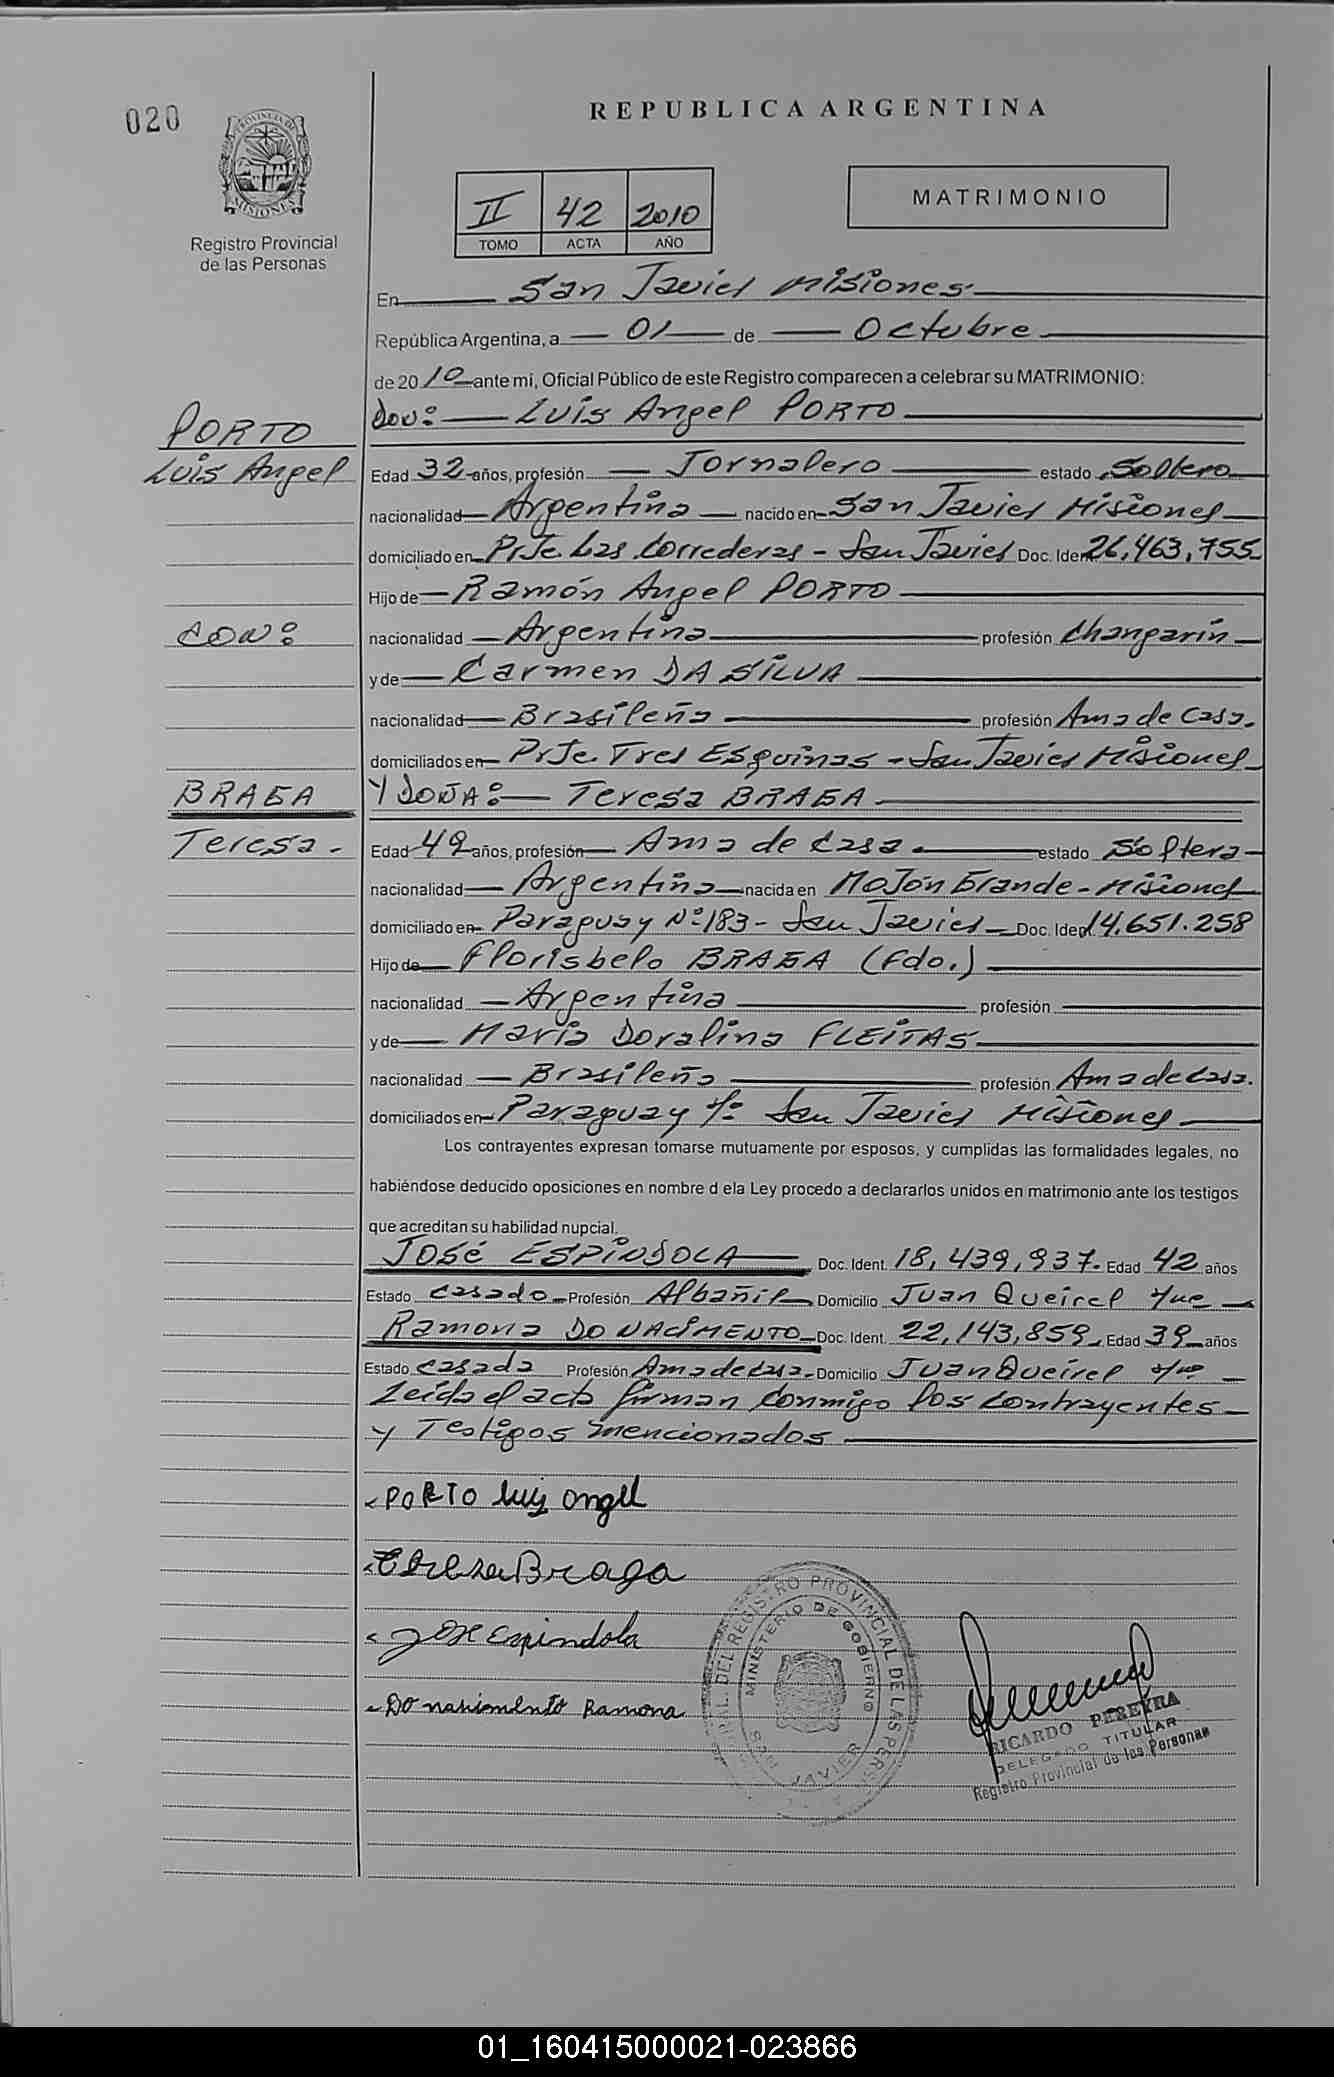 020
PROVINCIA DE
MISIONES
Registro Provincial
de las Personas
REPUBLICA ARGENTINA
II 42 2010
TOMO ACTA AÑO
MATRIMONIO
En San Javier Misiones
República Argentina, a 01 de Octubre
de 2010 ante mi, Oficial Público de este Registro comparecen a celebrar su MATRIMONIO:
Don: Luis Angel PORTO
PORTO
Luis Angel
Edad 32 años, profesión Jornalero estado Soltero
nacionalidad Argentina nacido en San Javier Misiones
domiciliado en Prje Las Correderas - San Javier Doc. Iden 26,463,755
Hijo de Ramón Angel PORTO
CON:
nacionalidad Argentina profesión Changarin
y de Carmen DA SILVA
nacionalidad Brasileña profesión Ama de Casa.
domiciliados en Prje. Tres Esquinas - San Javier Misiones
BRAGA
Y DOÑA: Teresa BRAGA
Teresa.
Edad 49 años, profesión Ama de Casa. estado Soltera
nacionalidad Argentina nacida en Mojón Grande - Misiones
domiciliado en Paraguay Nº 183 - San Javier Doc. Iden 14.651.258
Hijo de Florisbelo BRAGA (Fdo.)
nacionalidad Argentina profesión
y de Maria Doralina FLEITAS
nacionalidad Brasileña profesión Ama de casa.
domiciliados en Paraguay San Javier Misiones
Los contrayentes expresan tomarse mutuamente por esposos, y cumplidas las formalidades legales, no
habiéndose deducido oposiciones en nombre d ela Ley procedo a declararlos unidos en matrimonio ante los testigos
que acreditan su habilidad nupcial.
JOSÉ ESPINDOLA Doc. Ident. 18,439,937. Edad 42 años
Estado Casado Profesión Albañil Domicilio Juan Queirel
Ramona DO NACIMENTO Doc. Ident. 22,143,859 Edad 39 años
Estado Casada Profesión Ama de casa. Domicilio Juan Queirel
Leida el acta firman Conmigo los Contrayentes
y Testigos mencionados
PORTO luis angel
Teresa Braga
Jose Espindola
Do nasimento Ramona
DEL REGISTRO PROVINCIAL DE LAS PERS
MINISTERIO DE GOBIERNO
SAN JAVIER
RICARDO PEREYRA
DELEGADO TITULAR
Registro Provincial de las Personas
01_160415000021-023866